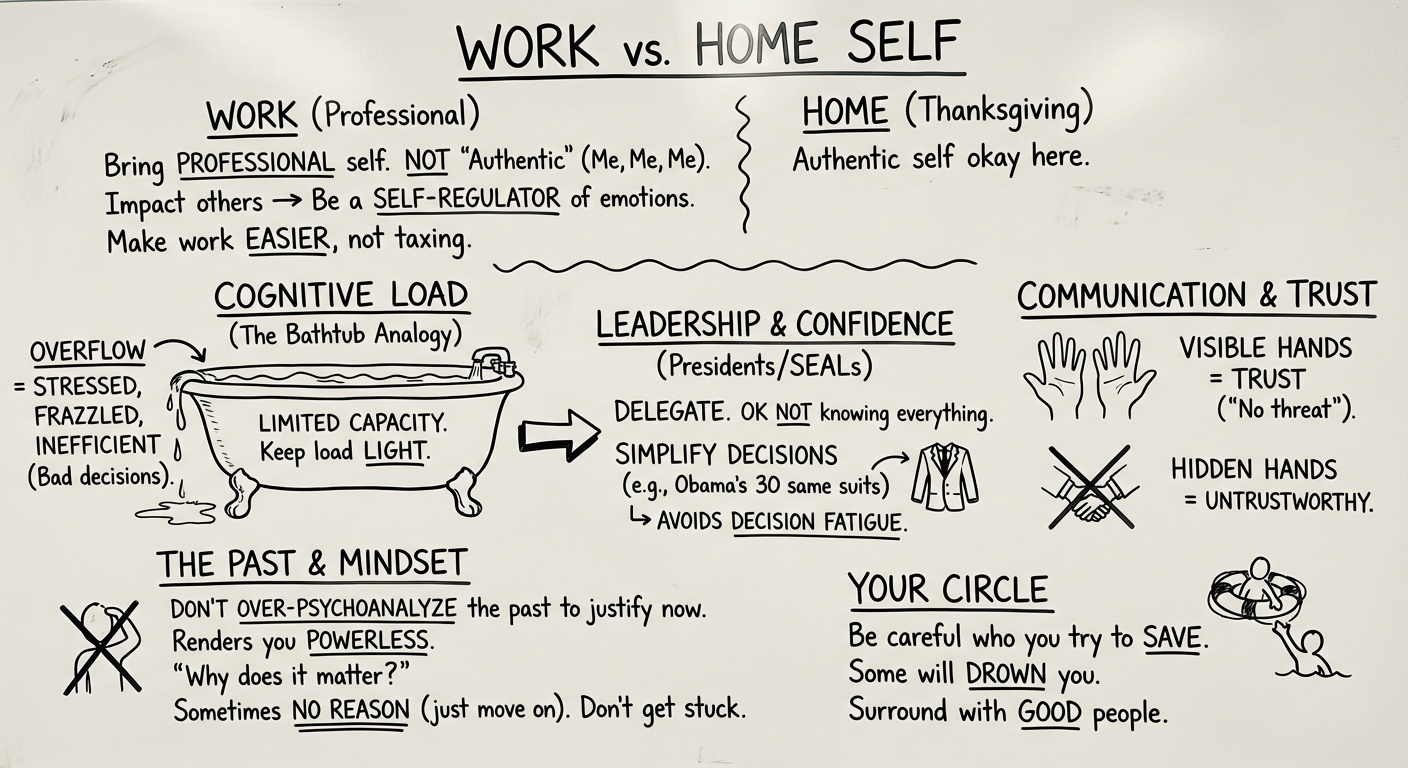 WORK vs. HOME SELF
WORK (Professional)
Bring PROFESSIONAL self. NOT "Authentic" (Me, Me, Me).
Impact others → Be a SELF-REGULATOR of emotions.
Make work EASIER, not taxing.
HOME (Thanksgiving)
Authentic self okay here.
COGNITIVE LOAD
(The Bathtub Analogy)
OVERFLOW
= STRESSED,
FRAZZLED,
INEFFICIENT
(Bad decisions).
LIMITED CAPACITY.
Keep load LIGHT.
LEADERSHIP & CONFIDENCE
(Presidents/SEALs)
DELEGATE. OK NOT knowing everything.
SIMPLIFY DECISIONS
(e.g., Obama's 30 same suits)
↳ AVOIDS DECISION FATIGUE.
COMMUNICATION & TRUST
VISIBLE HANDS
= TRUST
("No threat").
HIDDEN HANDS
= UNTRUSTWORTHY.
THE PAST & MINDSET
DON'T OVER-PSYCHOANALYZE the past to justify now.
Renders you POWERLESS.
"Why does it matter?"
Sometimes NO REASON (just move on). Don't get stuck.
YOUR CIRCLE
Be careful who you try to SAVE.
Some will DROWN you.
Surround with GOOD people.